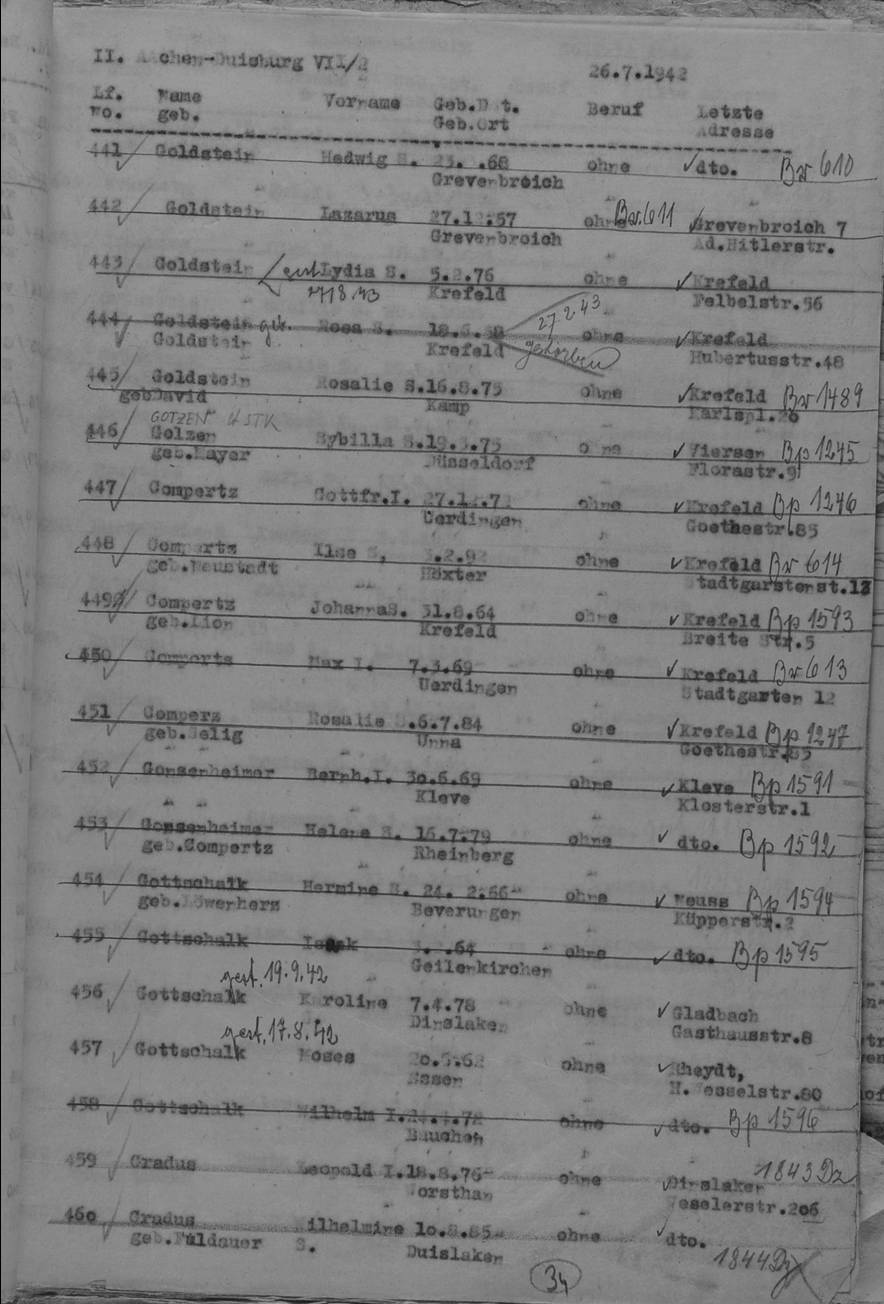 II. Aachen-Duisburg VII/2 26.7.1942
Lf. Name Vorname Geb.Dat. Beruf Letzte
No. geb. Geb.Ort Adresse
441 Goldstein Hedwig S. ohne dto. Bw 610
Grevenbroich
442 Goldstein Lazarus 27.12.57 ohne Bw.611 Grevenbroich 7
Grevenbroich Ad.Hitlerstr.
443 Goldstein gest Lydia S. 5.2.76 ohne Krefeld
27/8.43 Krefeld Felbelstr.56
444 Goldstein geb. Rosa S. 27.2.43 ohne Krefeld
Goldstein Krefeld gestorben Hubertusstr.48
445 Goldstein Rosalie S. 16.8.75 ohne Krefeld Bw 1489
geb.David Kamp Karlspl.26
GOTZEN
446 Golzen Sybilla S. ohne Viersen Bp 1245
geb.Mayer Düsseldorf Florastr.9
447 Gompertz Gottfr.I. ohne Krefeld Bp 1246
Uerdingen Goethestr.85
448 Gompertz Ilse S, ohne Krefeld Bw 614
geb.Neustadt Höxter Stadtgarstenst.12
449 Gompertz JohannaS. 31.8.64 ohne Krefeld Bp 1593
geb.Lion Krefeld Breite Str.5
450 Gomperts Max I. 7.3.69 ohne Krefeld Bw 613
Uerdingen Stadtgarten 12
451 Gomperz Rosalie S.6.7.84 ohne Krefeld Bp 1247
geb.Selig Unna Goethestr.85
452 Gonsenheimer Bernh.I. 30.6.69 ohne Kleve Bp 1591
Kleve Klosterstr.1
453 Gonsenheimer Helene S. 16.7.79 ohne dto. Bp 1592
geb.Gompertz Rheinberg
454 Gottschalk Hermine S. 24. 2.66 ohne Neuss Bp 1594
geb.Löwenherz Beverungen Küpperstr.2
455 Gottschalk Isaak ohne dto. Bp 1595
Geilenkirchen
gest. 19.9.42
456 Gottschalk Karoline 7.4.78 ohne Gladbach
Dinslaken Gasthausstr.8
gest. 17.8.42
457 Gottschalk Moses ohne Rheydt,
Essen H.Wesselstr.80
458 Gottschalk Wilhelm I. ohne dto. Bp 1596
459 Gradus Leopold I.18.8.76 ohne Dinslaken 1843 Dz
Weselerstr.206
460 Gradus Wilhelmine 10.8.85 ohne dto.
geb.Fuldauer S. Duislaken 1844 Dz
34